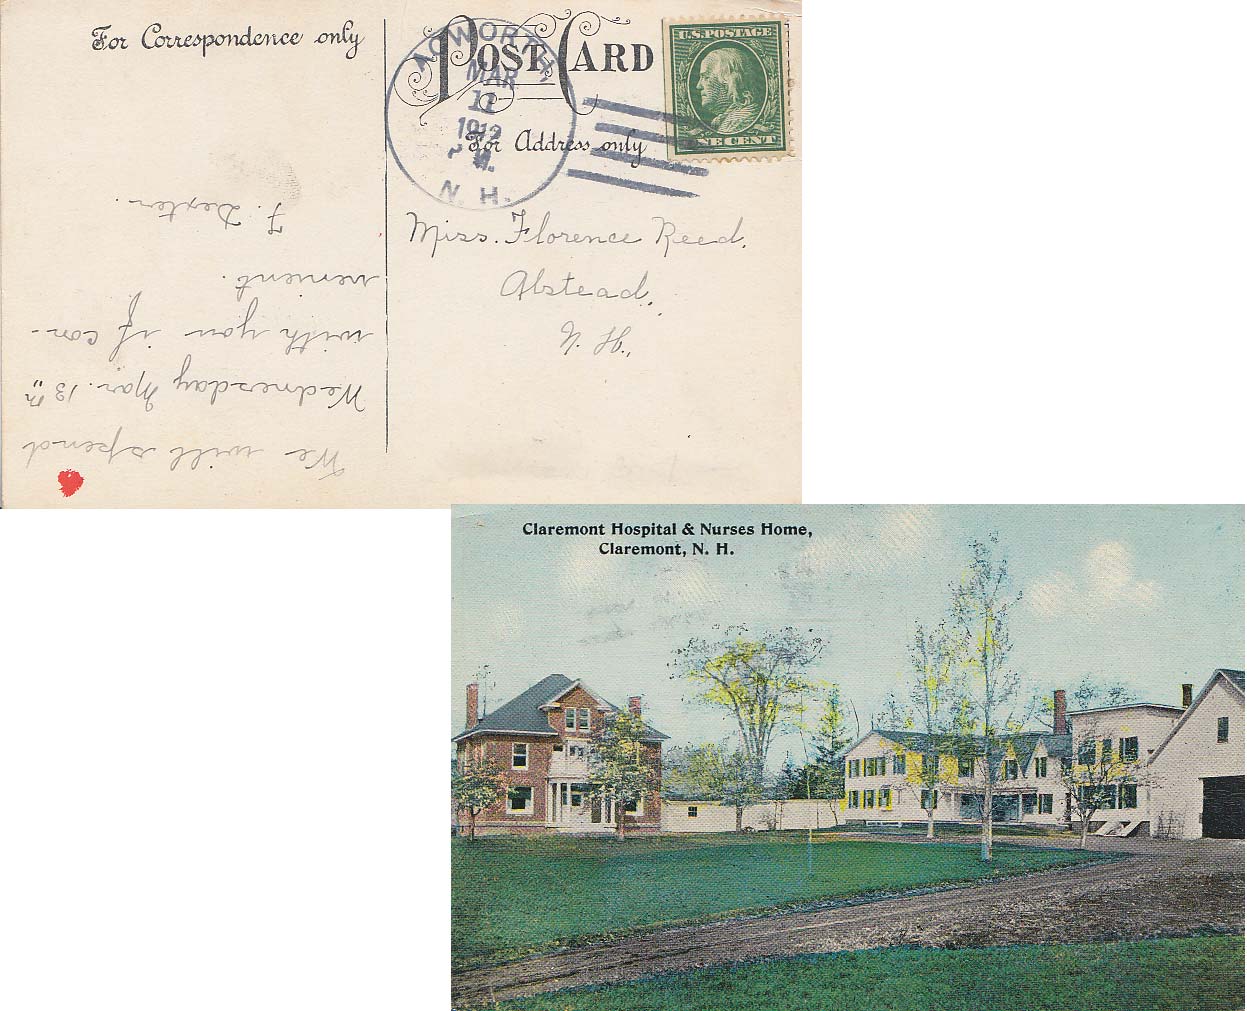 For Correspondence only
POST CARD
For Address only
ACWORTH,
MAR
11
1912
M.
N. H.
U.S. POSTAGE
ONE CENT
Miss. Florence Reed,
Alstead,
N. H.,
We will spend
Wednesday Mar. 13th
with you if con-
venient.
F. Dexter.
Claremont Hospital & Nurses Home,
Claremont, N. H.